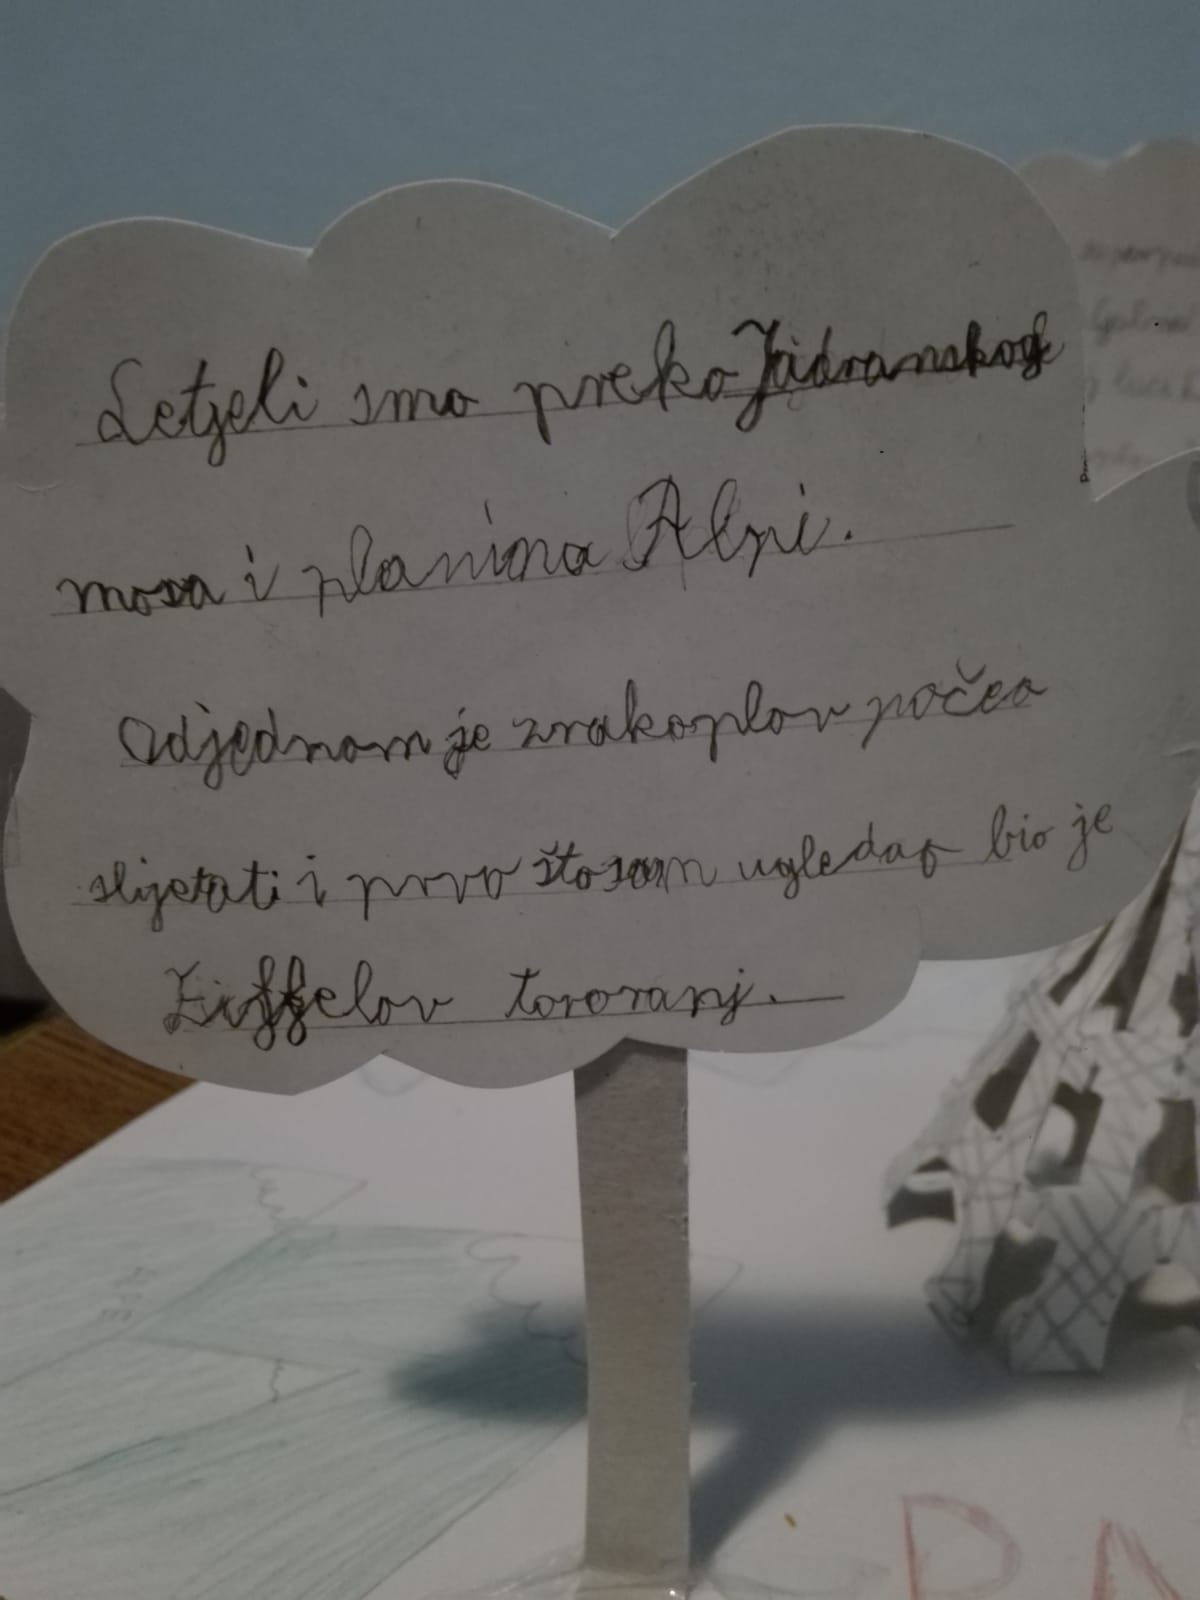 Letjeli smo preko Jadranskog
mora i planina Alpi.
Odjednom je zrakoplov počeo
slijetati i prvo što sam ugledao bio je
Eiffelov tororanj.